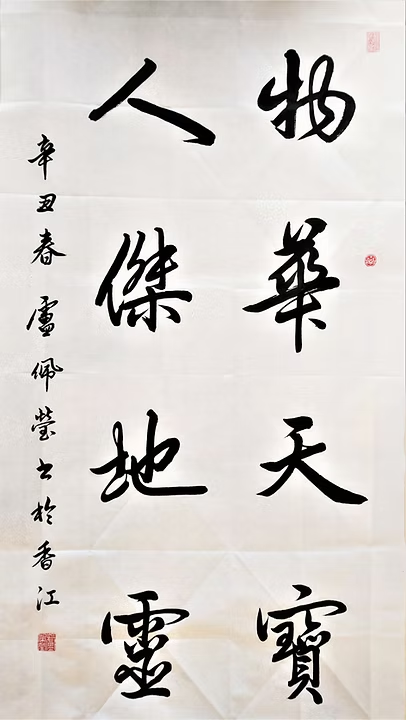 物華天寶
人傑地靈
辛丑春盧佩瑩書於香江